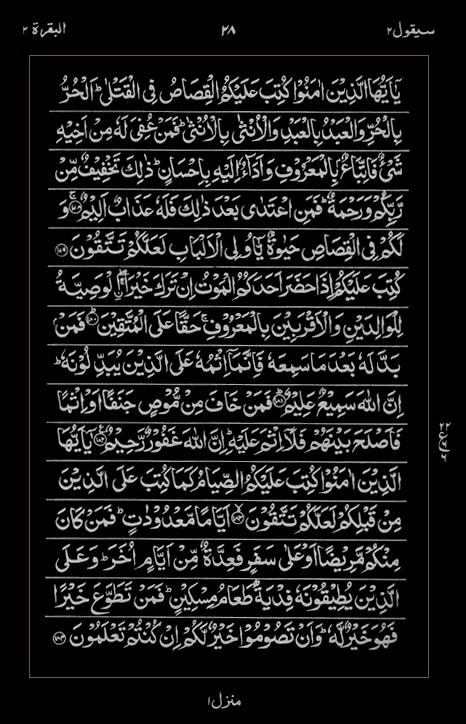 البقرة ٢
٢٨
سيقول ٢
يٰۤاَيُّهَا الَّذِيْنَ اٰمَنُوْا كُتِبَ عَلَيْكُمُ الْقِصَاصُ فِى الْقَتْلٰىؕ اَلْحُرُّ
بِالْحُرِّ وَالْعَبْدُ بِالْعَبْدِ وَالْاُنْثٰى بِالْاُنْثٰىؕ فَمَنْ عُفِىَ لَهٗ مِنْ اَخِيْهِ
شَىْءٌ فَاتِّبَاعٌۢ بِالْمَعْرُوْفِ وَاَدَآءٌ اِلَيْهِ بِاِحْسَانٍؕ ذٰلِكَ تَخْفِيْفٌ مِّنْ
رَّبِّكُمْ وَرَحْمَةٌؕ فَمَنِ اعْتَدٰى بَعْدَ ذٰلِكَ فَلَهٗ عَذَابٌ اَلِيْمٌ ۝۱۷۸ وَ
لَكُمْ فِى الْقِصَاصِ حَيٰوةٌ يّٰۤاُولِى الْاَلْبَابِ لَعَلَّكُمْ تَتَّقُوْنَ ۝۱۷۹
كُتِبَ عَلَيْكُمْ اِذَا حَضَرَ اَحَدَكُمُ الْمَوْتُ اِنْ تَرَكَ خَيْرَا ۖۚ اۨلْوَصِيَّةُ
لِلْوَالِدَيْنِ وَالْاَقْرَبِيْنَ بِالْمَعْرُوْفِۚ حَقًّا عَلَى الْمُتَّقِيْنَؕ ۝۱۸۰ فَمَنْۢ
بَدَّلَهٗ بَعْدَ مَا سَمِعَهٗ فَاِنَّمَاۤ اِثْمُهٗ عَلَى الَّذِيْنَ يُبَدِّلُوْنَهٗؕ
اِنَّ اللّٰهَ سَمِيْعٌ عَلِيْمٌؕ ۝۱۸۱ فَمَنْ خَافَ مِنْ مُّوْصٍ جَنَفًا اَوْ اِثْمًا
فَاَصْلَحَ بَيْنَهُمْ فَلَاۤ اِثْمَ عَلَيْهِؕ اِنَّ اللّٰهَ غَفُوْرٌ رَّحِيْمٌ ۝۱۸۲ يٰۤاَيُّهَا
الَّذِيْنَ اٰمَنُوْا كُتِبَ عَلَيْكُمُ الصِّيَامُ كَمَا كُتِبَ عَلَى الَّذِيْنَ
مِنْ قَبْلِكُمْ لَعَلَّكُمْ تَتَّقُوْنَۙ ۝۱۸۳ اَيَّامًا مَّعْدُوْدٰتٍؕ فَمَنْ كَانَ
مِنْكُمْ مَّرِيْضًا اَوْ عَلٰى سَفَرٍ فَعِدَّةٌ مِّنْ اَيَّامٍ اُخَرَؕ وَعَلَى
الَّذِيْنَ يُطِيْقُوْنَهٗ فِدْيَةٌ طَعَامُ مِسْكِيْنٍؕ فَمَنْ تَطَوَّعَ خَيْرًا
فَهُوَ خَيْرٌ لَّهٗؕ وَاَنْ تَصُوْمُوْا خَيْرٌ لَّكُمْ اِنْ كُنْتُمْ تَعْلَمُوْنَ ۝۱۸۴
٢٢
ع
٦
منزل ١